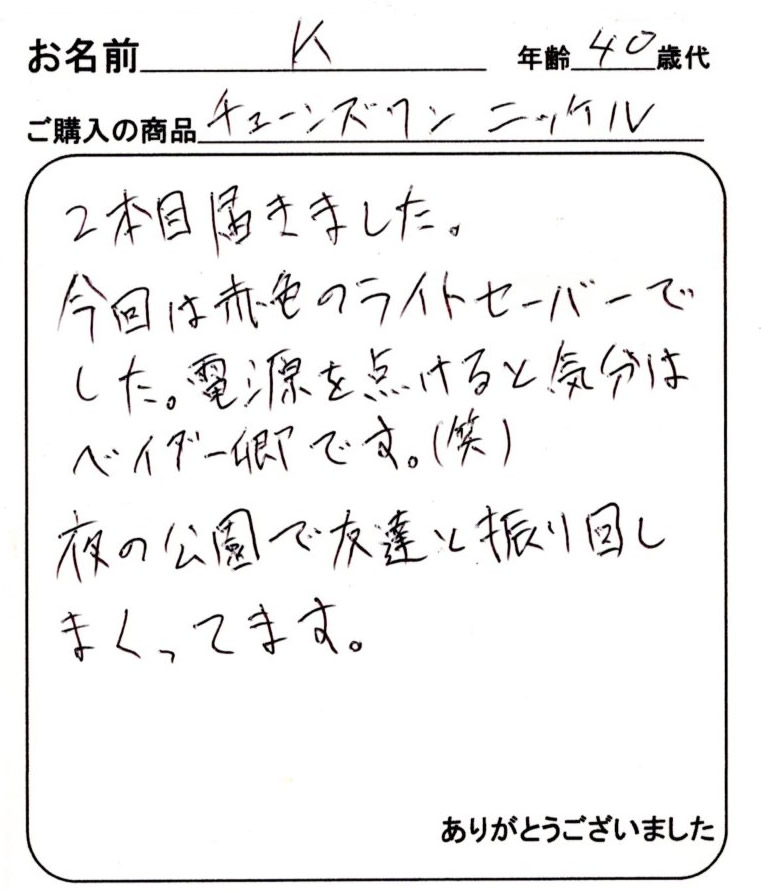 お名前 K 年齢 40 歳代
ご購入の商品 チェーンズワン ニッケル
2本目届きました。
今回は赤色のライトセーバーで
した。電源を点けると気分は
ベイダー卿です。(笑)
夜の公園で友達と振り回し
まくってます。
ありがとうございました